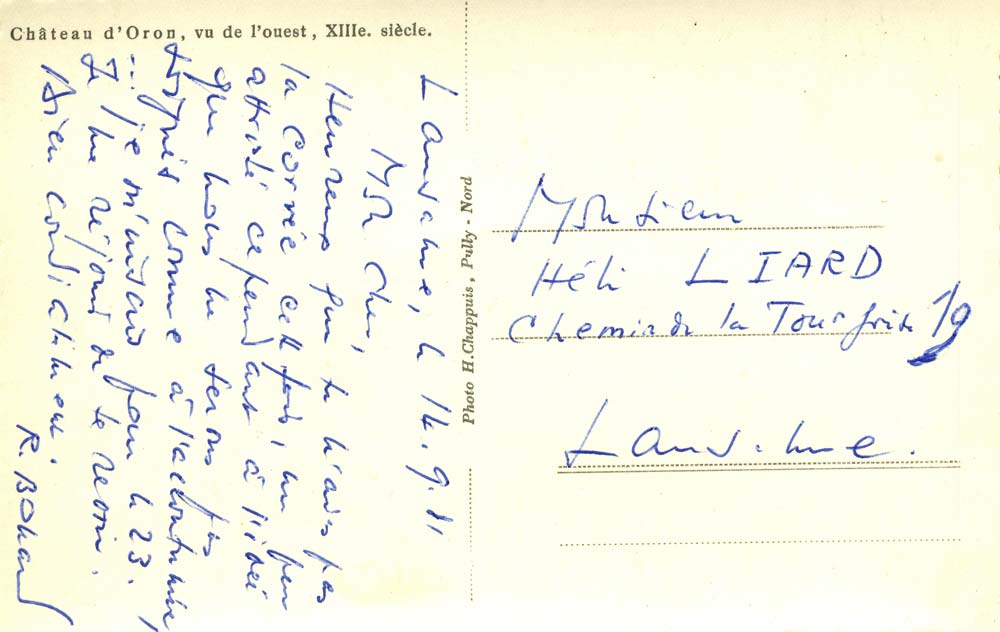 Château d'Oron, vu de l'ouest, XIIIe. siècle.
Lausanne, le 14.9.81
Mon cher,
Heureux que tu n'aies pas
la corvée cette fois, un peu
attristé cependant à l'idée
que nous ne serons pas
soignés comme à l'accoutumée,
... je m'inscris pour le 23.
Je me réjouis de te revoir.
Bien cordialement.
R. Bohard
Photo H. Chappuis, Pully - Nord
Monsieur
Héli LIARD
Chemin de la Tour grise 19
Lausanne.